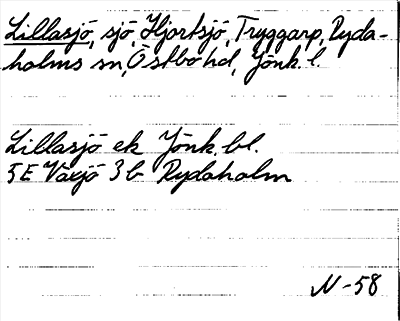 Lillasjö, sjö, Hjortsjö, Tryggarp, Ryda-
holms sn, Östbo hd, Jönk. l.
Lillasjö ek Jönk. bl.
5E Växjö 3b Rydaholm
N-58